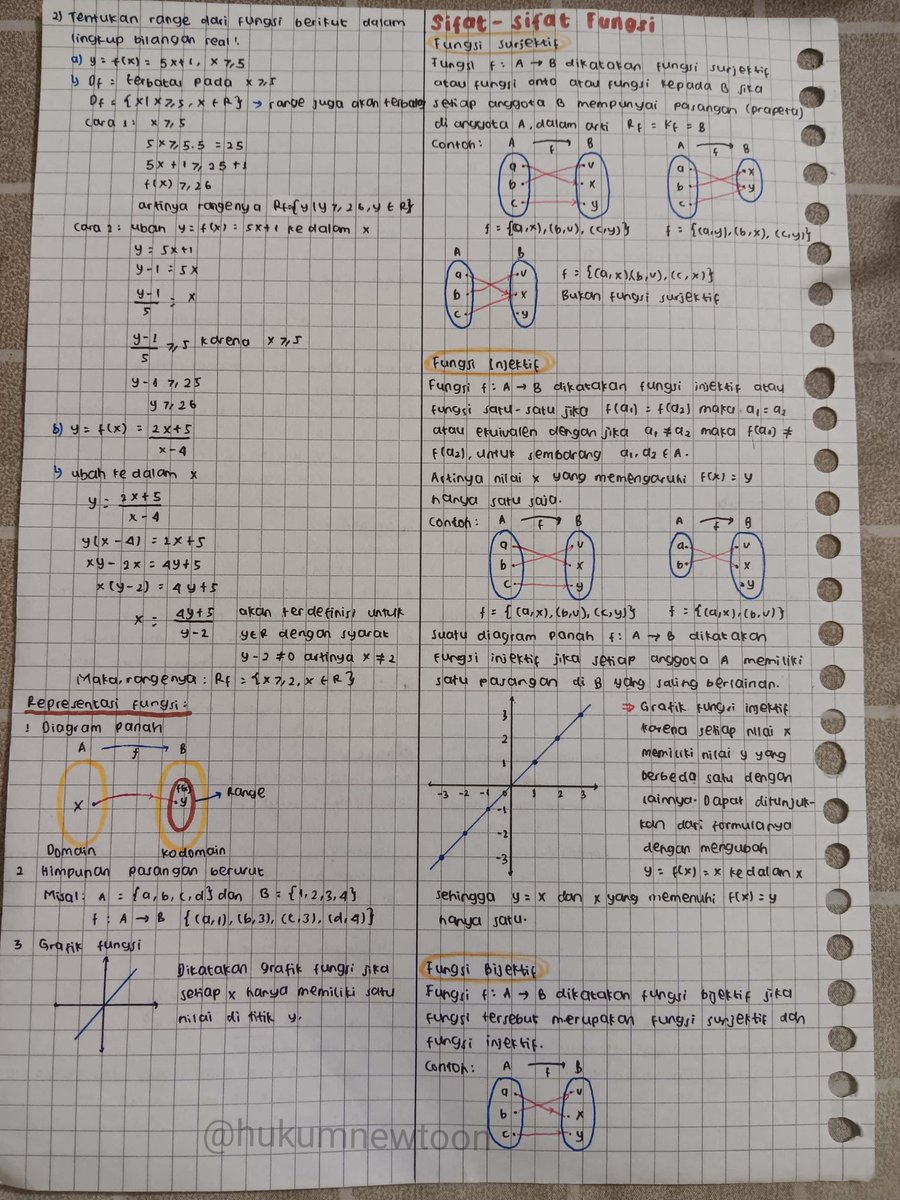 2) Tentukan range dari fungsi berikut dalam
lingkup bilangan real!
a) y = f(x) = 5x+1, x ≥ 5
↳ Df = terbatas pada x ≥ 5
Df = {x | x ≥ 5, x ∈ R} → range juga akan terbatas
Cara 1: x ≥ 5
5x ≥ 5.5 = 25
5x + 1 ≥ 25 + 1
f(x) ≥ 26
artinya rangenya Rf = {y | y ≥ 26, y ∈ R}
Cara 2: ubah y = f(x) = 5x+1 ke dalam x
y = 5x+1
y-1 = 5x
y-1
5
= x
y-1
5
≥ 5 karena x ≥ 5
y-1 ≥ 25
y ≥ 26
b) y = f(x) = 2x+5
x-4
↳ ubah ke dalam x
y = 2x+5
x-4
y(x-4) = 2x+5
xy - 2x = 4y+5
x(y-2) = 4y+5
x = 4y+5
y-2
akan terdefinisi untuk
y∈R dengan syarat
y-2 ≠ 0 artinya x ≠ 2
Maka, rangenya: Rf = {x ≥ 2, x ∈ R}
Representasi fungsi:
1 Diagram panah
A f B
x f(x) y → Range
Domain Kodomain
2 Himpunan pasangan berurut
Misal: A = {a, b, c, d} dan B = {1, 2, 3, 4}
f: A → B {(a,1), (b,3), (c,3), (d,4)}
3 Grafik fungsi
Dikatakan grafik fungsi jika
setiap x hanya memiliki satu
nilai di titik y.
Sifat - sifat Fungsi
Fungsi Surjektif
Fungsi f: A → B dikatakan fungsi surjektif
atau fungsi onto atau fungsi kepada B jika
setiap anggota B mempunyai pasangan (prapeta)
di anggota A, dalam arti Rf = Kf = B
Contoh: A f B A f B
a v a x
b x b y
c y c
f = {(a,x), (b,v), (c,y)} f = {(a,y), (b,x), (c,y)}
A B
a v
b x
c y
f = {(a,x)(b,v), (c,x)}
Bukan fungsi surjektif
Fungsi Injektif
Fungsi f: A → B dikatakan fungsi injektif atau
fungsi satu-satu jika f(a₁) = f(a₂) maka a₁ = a₂
atau ekuivalen dengan jika a₁ ≠ a₂ maka f(a₁) ≠
f(a₂), untuk sembarang a₁, a₂ ∈ A.
Artinya nilai x yang memengaruhi f(x) = y
hanya satu saja.
Contoh: A f B A f B
a v a v
b x b x
c y y
f = {(a,x), (b,v), (c,y)} f = {(a,x), (b,v)}
Suatu diagram panah f: A → B dikatakan
fungsi injektif jika setiap anggota A memiliki
satu pasangan di B yang saling berlainan.
3
2
1
-3 -2 -1 0 1 2 3
-1
-2
-3
⇒ Grafik fungsi injektif
karena setiap nilai x
memiliki nilai y yang
berbeda satu dengan
lainnya. Dapat ditunjuk-
kan dari formulanya
dengan mengubah
y = f(x) = x ke dalam x
sehingga y = x dan x yang memenuhi f(x) = y
hanya satu.
Fungsi Bijektif
Fungsi f: A → B dikatakan fungsi bijektif jika
fungsi tersebut merupakan fungsi surjektif dan
fungsi injektif.
Contoh: A f B
a v
b x
c y
@hukumnewtoon